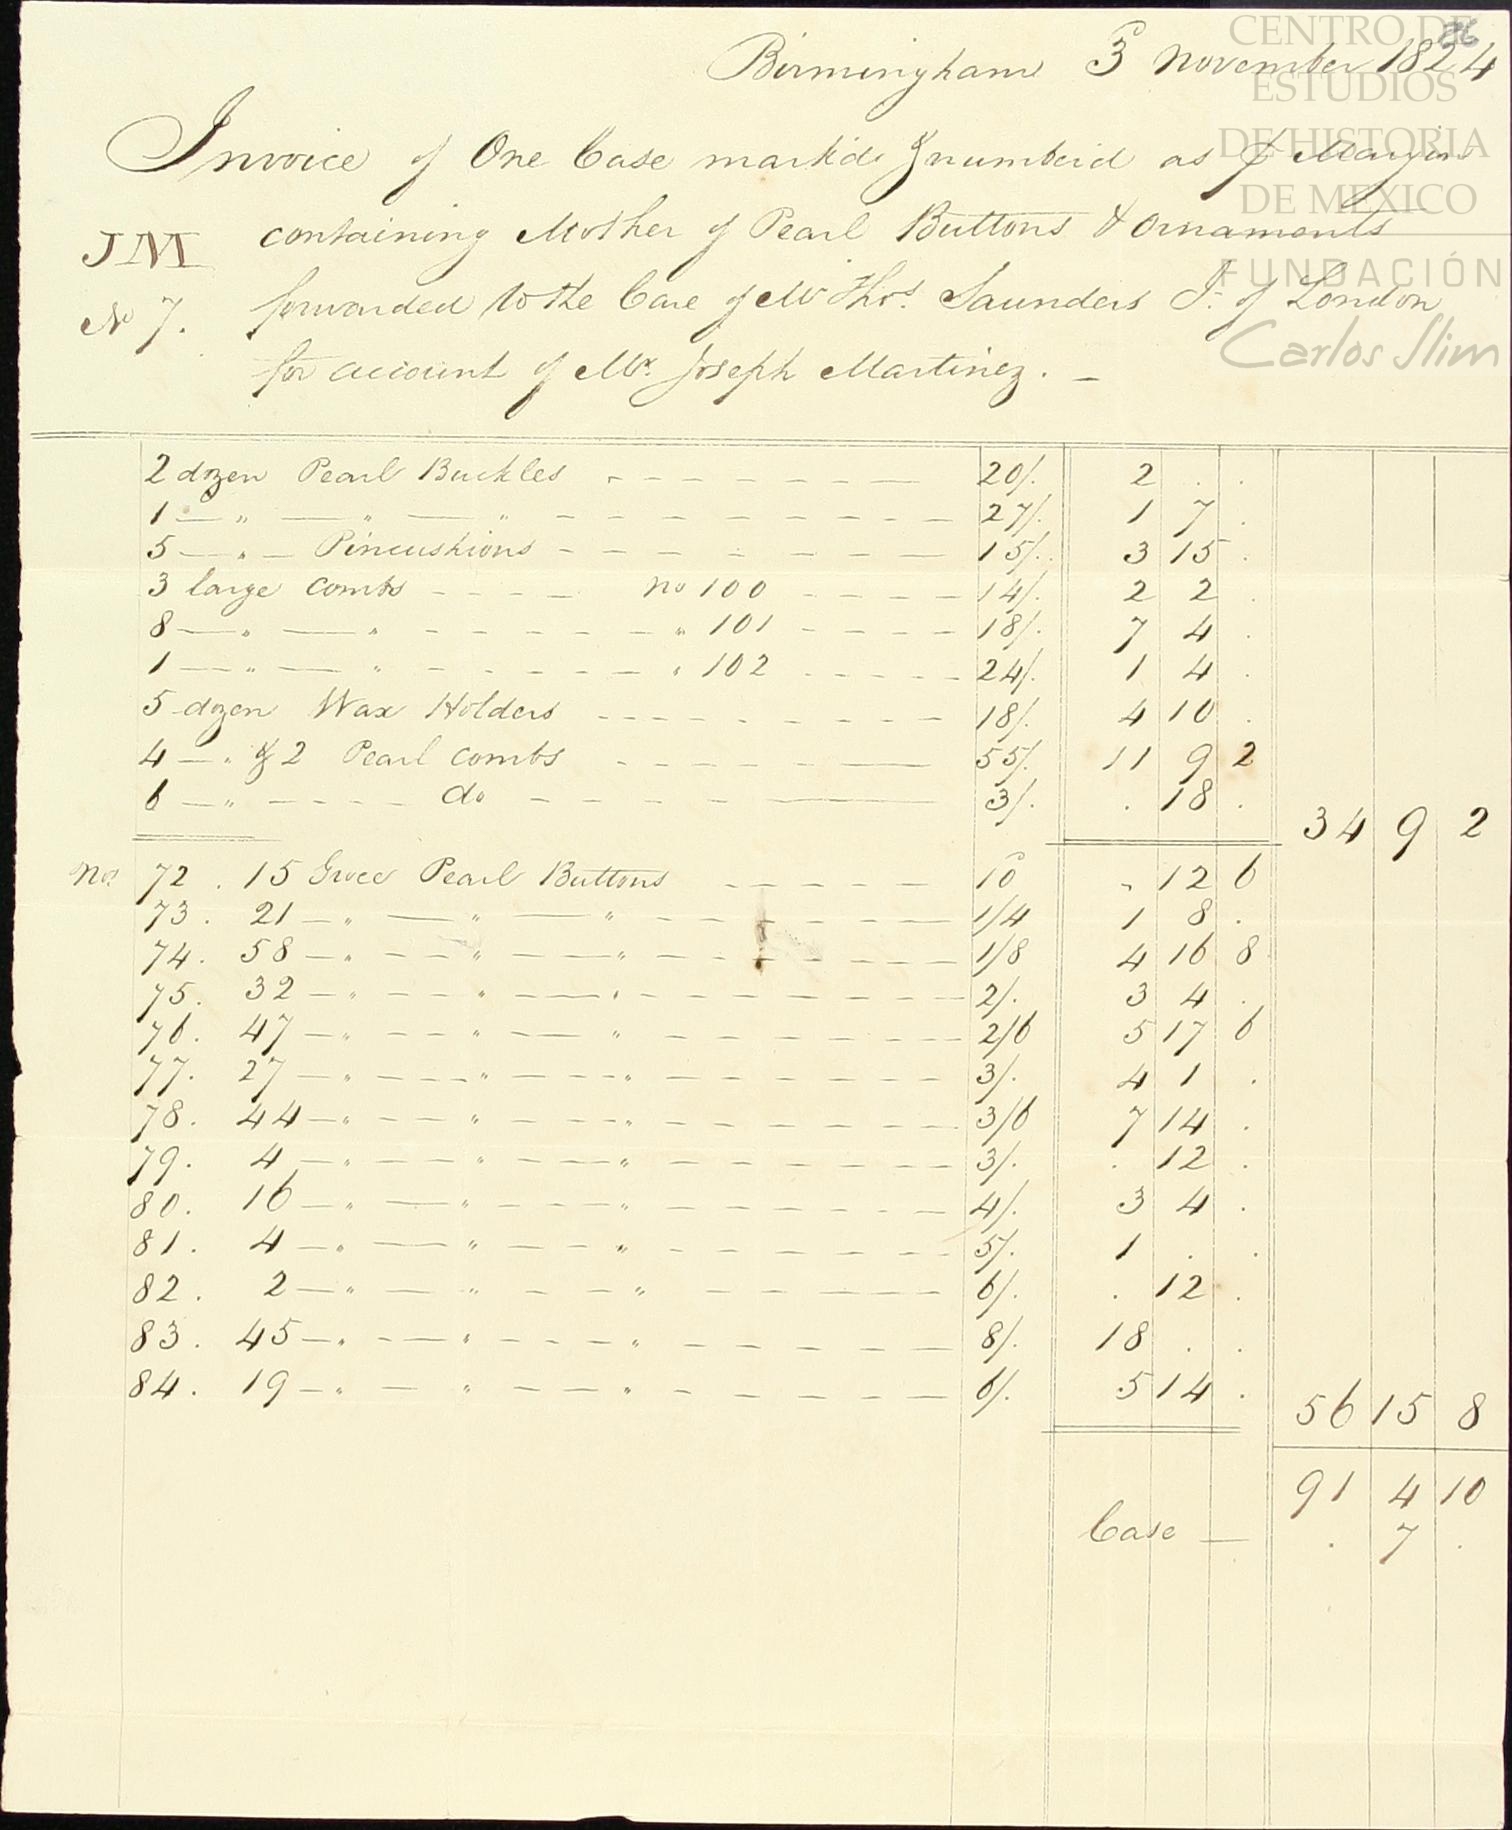 Birmingham 3 November 1824
26
Invoice of One Case mark'd & numberd as P Margin
JM containing Mother of Pearl Buttons & Ornaments
No 7. forwarded to the Care of Mr Thos. Saunders Jr. of London
for account of Mr. Joseph Martinez. –
2 dozen Pearl Buckles 20/. 2 . .
1 — " — " — " 27/. 1 7 .
5 — " — Pincushions 15/. 3 15 .
3 large combs no 100 14/. 2 2 .
8 — " — " " 101 18/. 7 4 .
1 — " — " " 102 24/. 1 4 .
5 dozen Wax Holders 18/. 4 10 .
4 — " & 2 Pearl combs 55/. 11 9 2
6 — " do 3/. . 18 .
34 9 2
Nos 72 . 15 Groce Pearl Buttons 10 . 12 6
73 . 21 — " — " — " 1/4 1 8 .
74 . 58 — " — " — " 1/8 4 16 8
75 . 32 — " — " — " 2/. 3 4 .
76 . 47 — " — " — " 2/6 5 17 6
77 . 27 — " — " — " 3/. 4 1 .
78 . 44 — " — " — " 3/6 7 14 .
79 . 4 — " — " — " 3/. . 12 .
80 . 16 — " — " — " 4/. 3 4 .
81 . 4 — " — " — " 5/. 1 . .
82 . 2 — " — " — " 6/. . 12 .
83 . 45 — " — " — " 8/. 18 . .
84 . 19 — " — " — " 6/. 5 14 .
56 15 8
91 4 10
Case — . 7 .
CENTRO DE
ESTUDIOS
DE HISTORIA
DE MEXICO
FUNDACIÓN
Carlos Slim